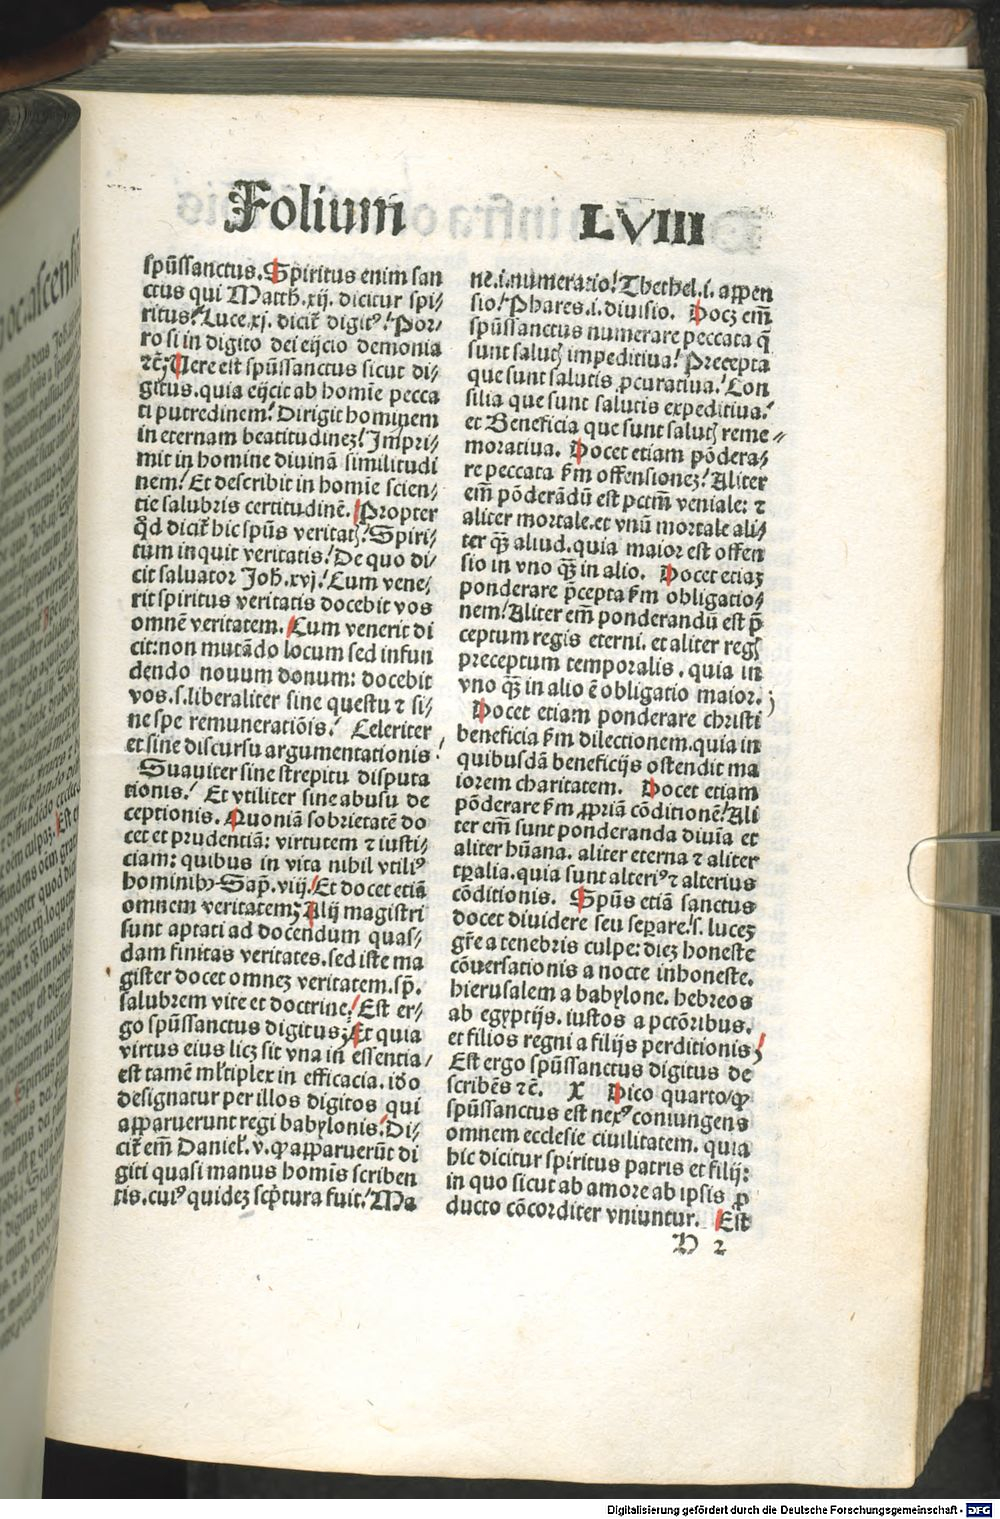 Folium LVIII
spūssanctus. Spiritus enim san
ctus qui Matth. xij. dicitur spi⸗
ritus! Luce. xj. dicit᷑ digitꝰ! Por⸗
ro si in digito dei eijcio demonia
⁊c̄. Uere est spūssanctus sicut di⸗
gitus. quia eijcit ab homīe pecca
ti putredinem! Dirigit hominem
in eternam beatitudinez! Impri⸗
mit in homine diuinā similitudi
nem! Et describit in homīe scien⸗
tie salubris certitudinē. Propter
qd̛ dicit᷑ hic spūs veritatꝭ! Spiri⸗
tum inquit veritatis! De quo di⸗
cit saluator Joh̄. xvj. Cum vene⸗
rit spiritus veritatis docebit vos
omnē veritatem. Cum venerit di
cit: non mutādo locum sed infun
dendo nouum donum: docebit
vos. s. liberaliter sine questu ⁊ si⸗
ne spe remuneratiōis! Celeriter
et sine discursu argumentationis!
Suauiter sine strepitu disputa
tionis! Et vtiliter sine abusu de
ceptionis. Quoniā sobrietatē do
cet et prudentiā: virtutem ⁊ iusti⸗
ciam: quibus in vita nihil vtiliꝰ
hominibꝰ. Sap̄. viij. Et docet etiā
omnem veritatem; Alij magistri
sunt aptati ad docendum quas⸗
dam finitas veritates. sed iste ma
gister docet omnez veritatem. sp̄.
salubrem vite et doctrine! Est er⸗
go spūssanctus digitus; Et quia
virtus eius licz sit vna in essentia/
est tamē mĺtiplex in efficacia. ido
designatur per illos digitos qui
apparuerunt regi babylonis. Di⸗
cit᷑ em̄ Danieĺ. v. ꝙ apparuerūt di
giti quasi manus homīs scriben
tis. cuiꝰ quidez scp̄tura fuit! Ma
ne. i. numeratio! Thethel. i. appen
sio! Phares. i. diuisio. Docz em̄
spūssanctus numerare peccata q̄
sunt salutꝭ impeditiua! Precepta
que sunt salutis ꝓcuratiua! Con
silia que sunt salutis expeditiua!
et Beneficia que sunt salutꝭ reme⸗
moratiua. Docet etiam pōdera⸗
re peccata ẜm offensionez! Aliter
em̄ pōderādū est pctm̄ veniale: ⁊
aliter mortale. et vnū mortale ali⸗
ter qꝫ̄ aliud. quia maior est offen
sio in vno qꝫ̄ in alio. Docet etiaz
ponderare p̄cepta ẜm obligatio⸗
nem! Aliter em̄ ponderandū est p̄
ceptum regis eterni. et aliter regꝭ
preceptum temporalis. quia in
vno qꝫ̄ in alio ē obligatio maior.
Docet etiam ponderare christi
beneficia ẜm dilectionem. quia in
quibusdā beneficijs ostendit ma
iorem charitatem. Docet etiam
pōderare ẜm ꝓpriā cōditionē! Ali
ter em̄ sunt ponderanda diuīa et
aliter hūana. aliter eterna ⁊ aliter
tꝑalia. quia sunt alteriꝰ ⁊ alterius
cōditionis. Spūs etiā sanctus
docet diuidere seu seꝑare. s. lucez
gr̄e a tenebris culpe: diez honeste
cōuersationis a nocte inhoneste.
hierusalem a babylone. hebreos
ab egyptijs. iustos a pctōribus.
et filios regni a filijs perditionis;
Est ergo spūssanctus digitus de
scribēs ⁊c̄. X Dico quarto/ ꝙ
spūssanctus est nexꝰ coniungens
omnem ecclesie ciuilitatem. quia
hic dicitur spiritus patris et filij:
in quo sicut ab amore ab ipsis ꝓ
ducto cōcorditer vniuntur. Est
H 2
Digitalisierung gefördert durch die Deutsche Forschungsgemeinschaft - DFG